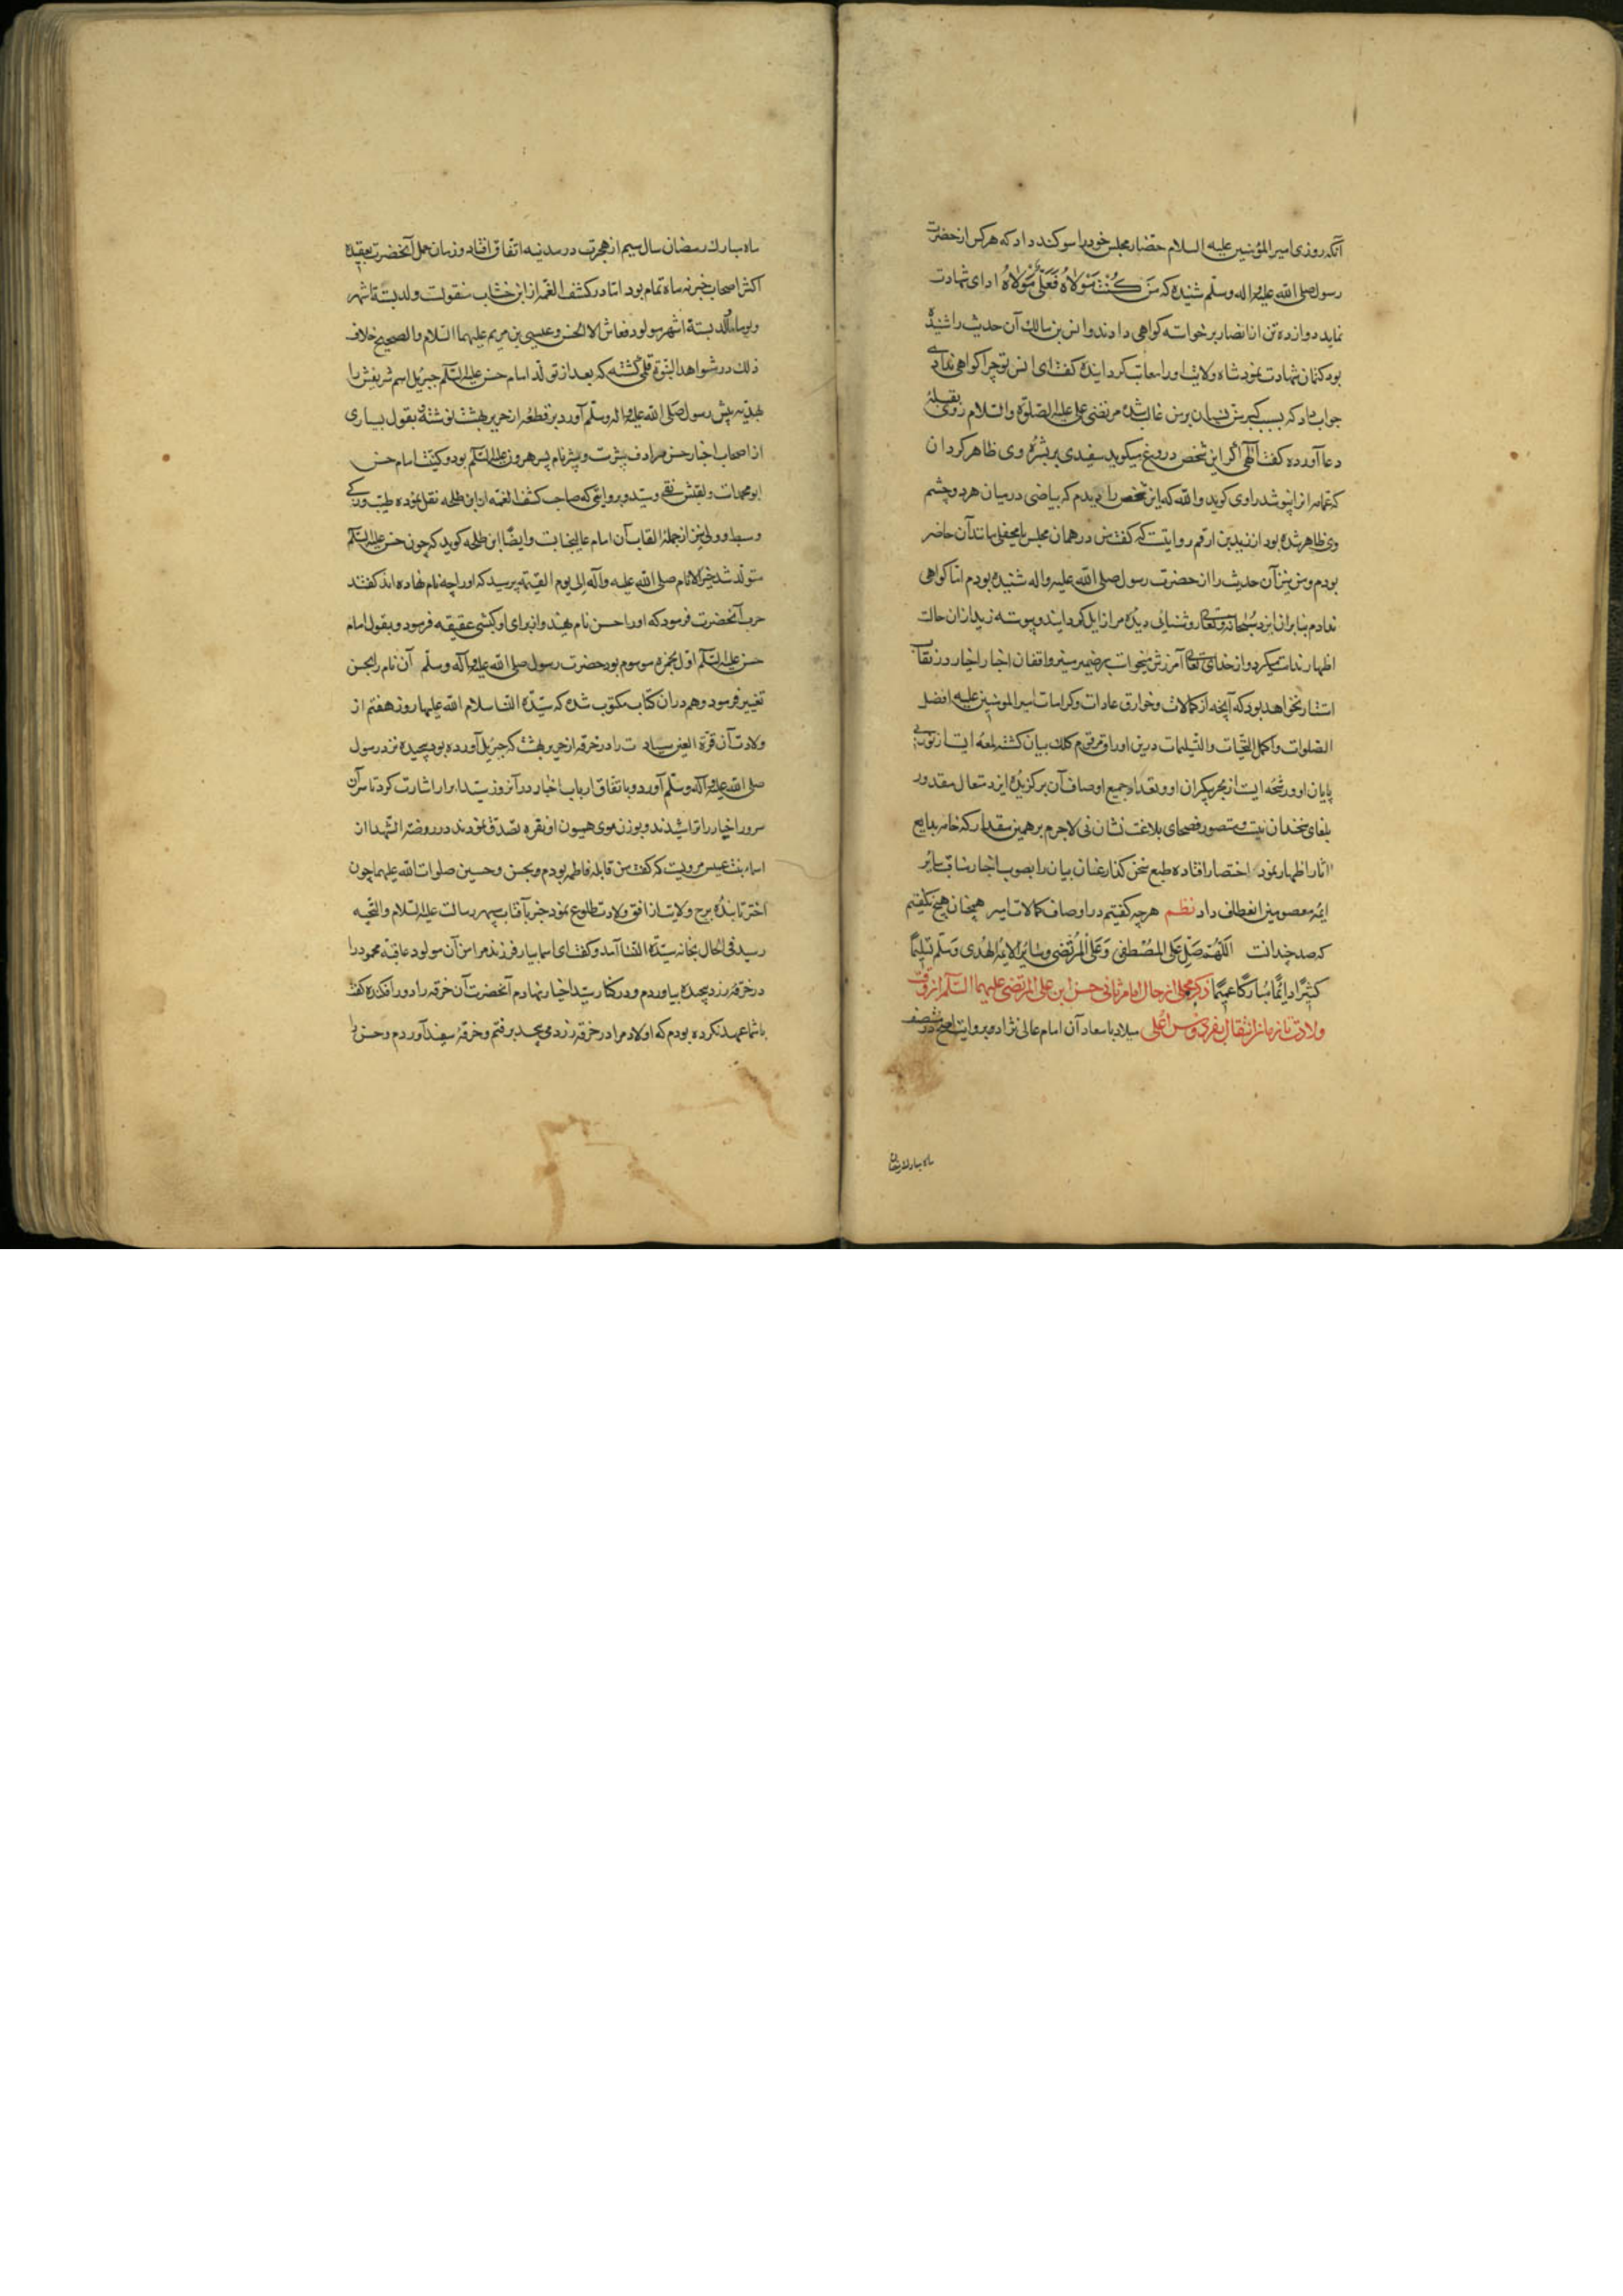 آنکه روزی امیر المؤمنین علیه السلام حضار مجلس خود را سوکند داد که هر کس از حضرت
رسول صلی الله علیه واله وسلم شنیده که مَن کُنْتُ مَوْلاهُ فَعَلیٌّ مَوْلاهُ ادای شهادت
نماید دوازده تن از انصار برخواسته کواهی دادند وانس بن مالك آن حدیث را شنیده
بود کتمان شهادت نمود شاه ولایت اورا معاتب کردانیده کفت ای انس تو چرا کواهی ندادی
جواب داد که بسبب کبر سن نسیان بر من غالب شده مرتضی علی علیه الصلوة والسلام روی بقبلهٔ
دعا آورده کفت الهی اکر این شخص دروغ میکوید سفیدی بر بشرهٔ وی ظاهر کردان
که عمامه انرا نپوشد راوی کوید والله که این شخص را دیدم که بیاضی در میان هر دو چشم
وی ظاهر شده بود از زید بن ارقم روایتست که کفت من در همان مجلس یا محفلی مانند آن حاضر
بودم ومن نیز آن حدیث را از حضرت رسول صلی الله علیه واله شنیده بودم اما کواهی
ندادم بنابران ایزد سبحانه وتعالی روشنائی دیدهٔ مرا زایل کردانید وپیوسته زید ازان حالت
اظهار ندامت میکرد واز خدای تعالی آمرزش میخواست بر ضمیر منیر واقفان اخبار اخیار در نقاب
استتار نخواهد بود که آنچه از کمالات وخوارق عادات وکرامات امیر المومنین علیه افضل
الصلوات واکمل التحیات والتسلیمات درین اوراق مرقوم کلك بیان کشته لمعه ایست از نور بی
پایان او ورشحه ایست از بحر بیکران او وتعداد جمیع اوصاف آن برکزیدهٔ ایزد متعال مقدور
بلغای سخندان نیست ومتصور فصحای بلاغت نشان نی لاجرم بر همین مقدار که خامه بدایع
آثار اظهار نمود اختصار افتاده طبع سخن کذار عنان بیان را بصوب اخبار مناقب سایر
ایمهٔ معصومین انعطاف داد نظم هرچه کفتیم در اوصاف کمالات امیر همچنان هیچ نکفتیم
که صد چندانست اللّهُمَّ صَلِّ عَلَی المُصْطَفی وَعَلیٍّ المُرْتَضی وسائِرِ الایمهِ الهُدی وَسَلِّم تَسْلِیماً
کثِیراً دایماً مُبارکاً عَمِیماً ذکر مجملی از حال امام ثانی حسن ابن علی المرتضی علیهما السلم از وقت
ولادت تا زمان انتقال بفردوس اعلی میلاد با سعاد آن امام عالی نژاد بروایت اصح در منتصف
ماه مبارك رمضان
ماه مبارك رمضان سال سیم از هجرت در مدینه اتفاق افتاد وزمان حمل آنحضرت بعقیدهٔ
اکثر اصحاب خبر نه ماه تمام بود اما در کشف الغمه از ابن خشاب منقولست ولد بستة اشهر
ولم یولد لستة اشهر مولود فعاش الا الحسن وعیسی بن مریم علیهما السلام والصحیح خلاف
ذلك در شواهد النبوة قلمی کشته که بعد از تولد امام حسن علیه السلم جبرئیل اسم شریفش را
بهدیه پیش رسول صلی الله علیه واله وسلم آورد بر قطعهٔ از حریر بهشت نوشته وبقول بسیاری
از اصحاب اخبار حسن مرادف شبرست وشبر نام پسر هرون علیه السلم بود وکنیت امام حسن
ابو محمدست ولقبش تقی وسید وبروایتی که صاحب کشف الغمه از ابن طلحه نقل نموده طیب وزکی
وسبط وولی نیز از جملهٔ القاب آن امام عالیجنابست وایضاً ابن طلحه کوید که چون حسن علیه السلم
متولد شد خیر الانام صلی الله علیه وآله الی یوم القیمه پرسید که اورا چه نام نهاده اند کفتند
حرب آنحضرت فرمود که اورا حسن نام نهید واز برای او کبشی عقیقه فرمود وبقول امام
حسن علیه السلم اول بحمزه موسوم بود حضرت رسول صلی الله علیه وآله وسلم آن نام را بحسن
تغییر فرمود وهم دران کتاب مکتوب شده که سیّدة النسا سلام الله علیها روز هفتم از
ولادت آن قرة العین سیادت را در خرقه از حریر بهشت که جبرئیل آورده بود پیچیده نزد رسول
صلی الله علیه وآله وسلم آورد وباتفاق ارباب اخبار در آنروز سید ابرار اشارت کرد تا سر آن
سرور اخیار را تراشیدند وبوزن موی همیون او نقره تصدق نمودند در روضة الشهدا از
اسماء بنت عمیس مرویست که کفت من قابله فاطمه بودم وبحسن وحسین صلوات الله علیهما چون
اختر تابندهٔ برج ولایت از افق ولادت طلوع نمود خبر بآفتاب سپهر رسالت علیه السلام والتحیه
رسید فی الحال بخانه سیّدة النسا آمد وکفت ای اسما بیار فرزند مرا من آن مولود عاقبة محمود را
در خرقهٔ زرد پیچیده بیاوردم ودر کنار سید اخیار نهادم آنحضرت آن خرقه را دور افکنده کفت
با شما عهد نکرده بودم که اولاد مرا در خرقه زرد مپیچید برفتم وخرقهٔ سفید آوردم وحسن را